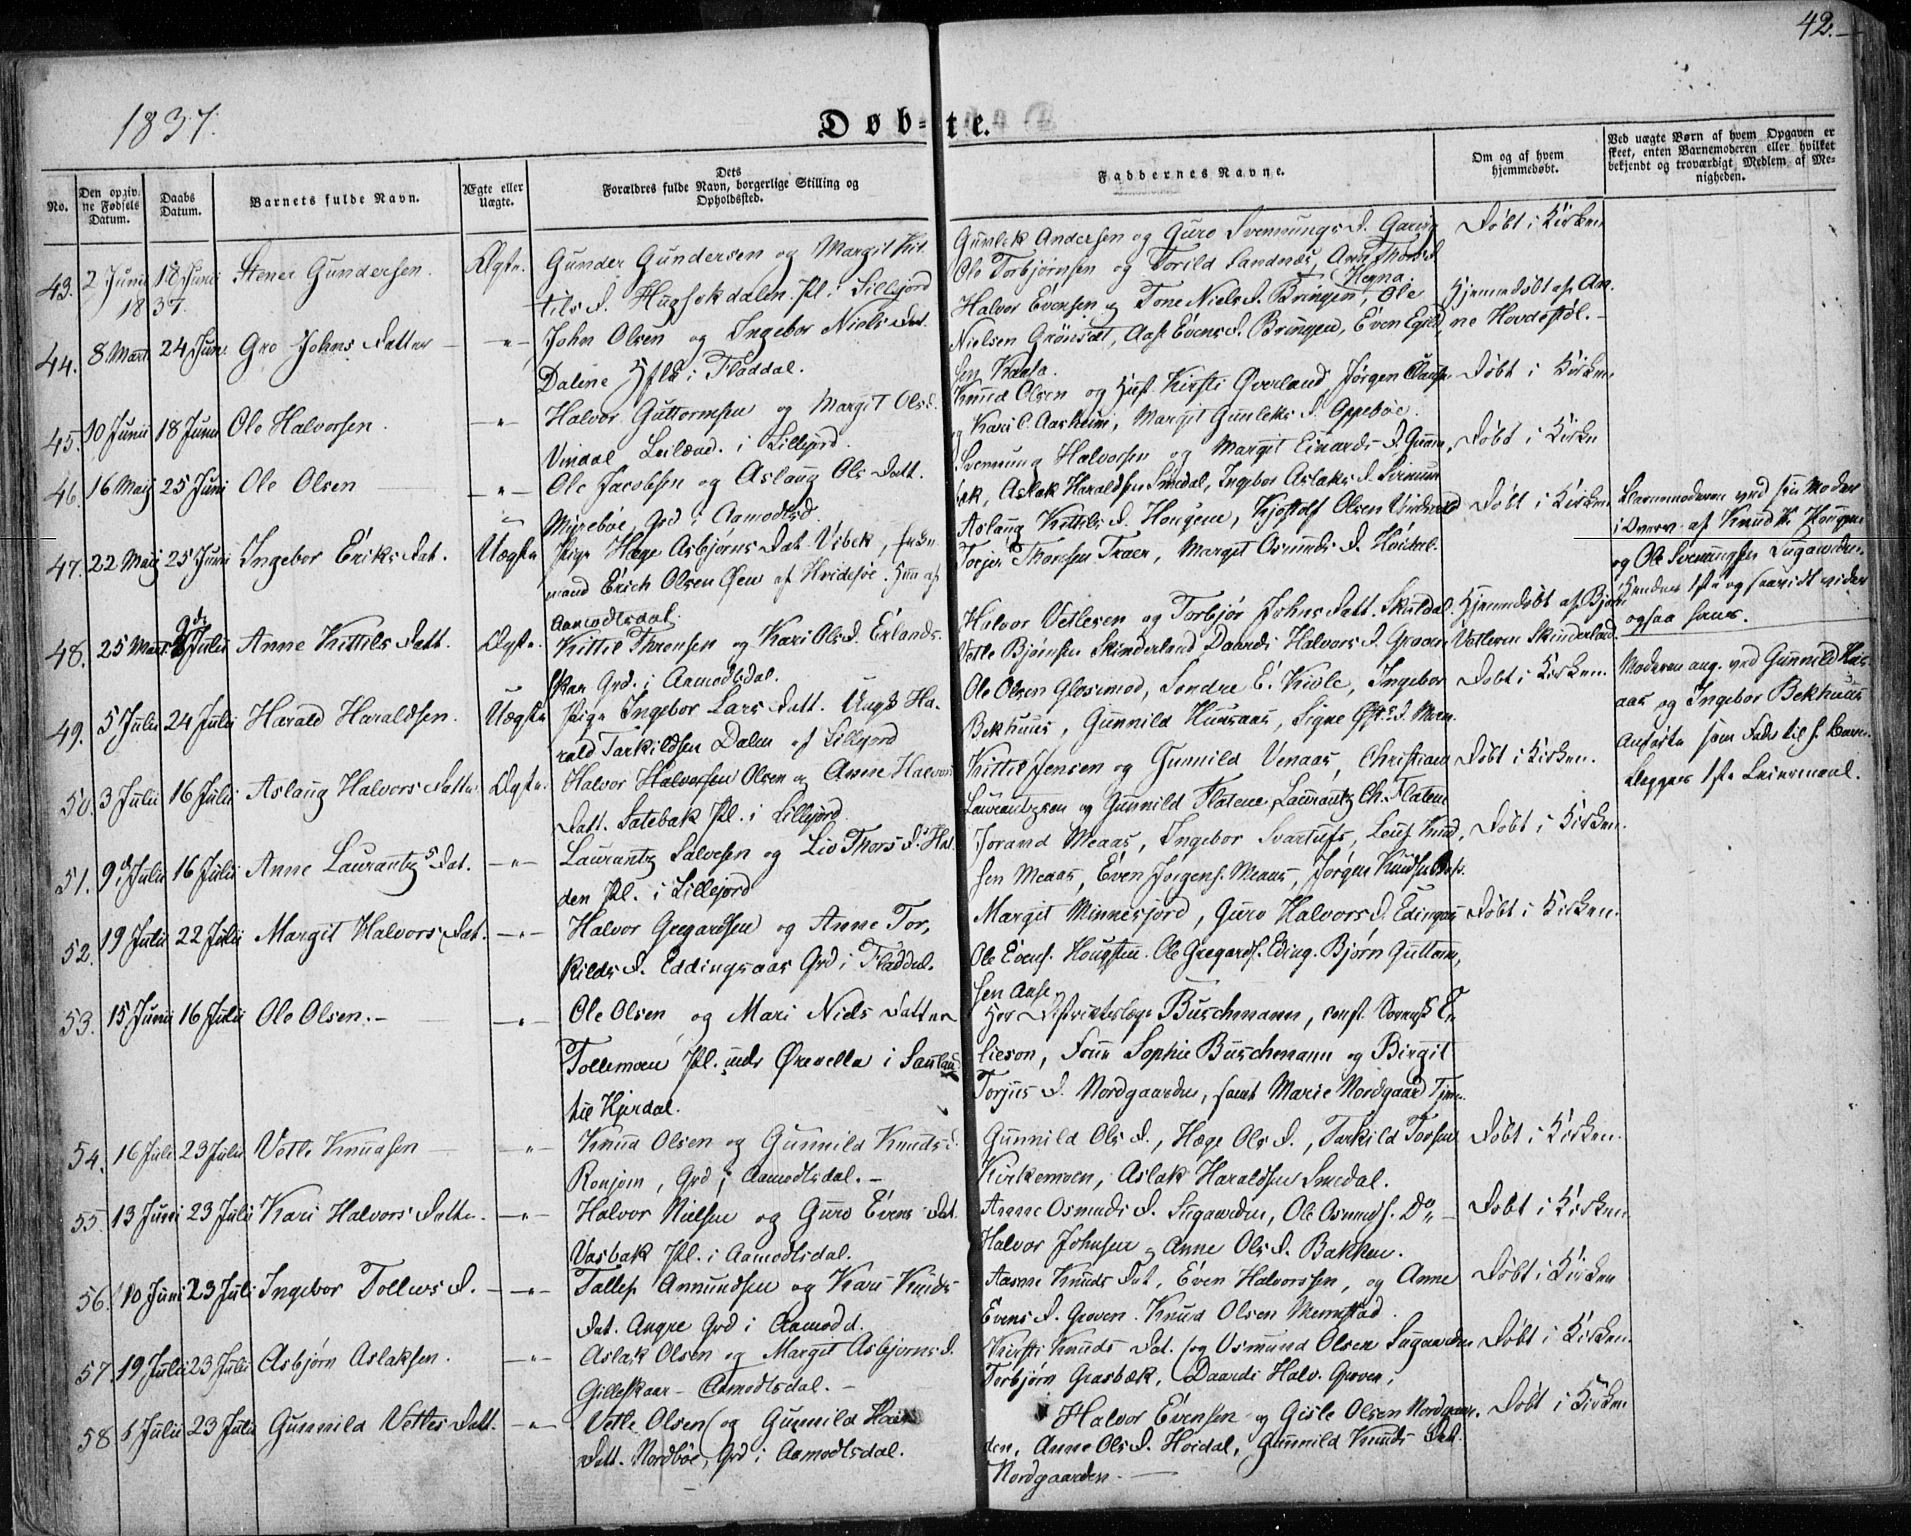 42.
1837.
Døb=te.
No.
Den opgivne Fødsels Datum.
Daabs Datum.
Barnets fulde Navn.
Ægte eller Uægte.
Dets Forældres fulde Navn, borgerlige Stilling og Opholdssted.
Faddernes Navne.
Om og af hvem hjemmedøbt.
Ved uægte Børn af hvem Opgaven er skeet, enten Barnemoderen eller hvilket bekjendt og troværdigt Medlem af Menigheden.
43. 2 Juni 1837 18 Juni Stener Gundersen. Ægte.
Gunder Gundersen og Margit Kit
tils D. Pl. i Sillejord
Gunlek Andersen og Guro Svennungs D.
Ole Torbjørnsen og Torild Sandnes,
Hegna.
Døbt i Kirken
44. 8 Mart 24 Juni Gro Johns Datter — „ —
John Olsen og Ingebor Niels Dat.
Dalene i Fladdal.
Halvor Evensen og Tone Niels D. Bringen, Ole
Nielsen Grønset, Aase Evens D. Bringen, Even
sen Kaasa.
Hjemmedøbt af An
ne Hovdestøl. —
45. 10 Junii 18 Juni Ole Halvorsen. — „ —
Halvor Guttormsen og Margit Ols D.
Vindal Leilænd. i Sillejord.
Knud Olsen og Kirsti Øverland, Jørgen
Aasheim, Margit Gunleks D. Oppebøe.
Døbt i Kirken
46 16 Maij 25 Juni Ole Olsen — „ —
Ole Jacobsen og Aslaug Ols Datt.
Myrebøe, Grd i Aamodtsd.
Svennung Halvorsen og Margit Einards D.
bek, Aslak Haraldsen Smedal, Ingebor Aslaks D.
Døbt i Kirken
47. 22 Maij 25 Juni Ingebor Eriks Dat. Uægte
Pige Hæge Asbjørns Dat. Vibek,
mand Erich Olsen Øen af Hvidesøe.
Aamodtsdal.
Aslaug Kittils D. Hougene, Kjostolf Olsen
Torjer Thorsen Traer, Margit Osmunds D.
Døbt i Kirken
Barnemoderen ved sin Moder
i Overv. af Knud K. Hougen
og Ole Svenningsen
Hendes 1ste og saavidt vides
ogsaa hans.
48. 25 Mart 9de Julii Anne Kittils Datt. Ægte.
Kittil Thronsen og Kari Ols D. Erlands
skar Grd. i Aamodsdal.
Halvor Vetlesen og Torbjør Johns Datt. Skuldal
Vetle Bjørnsen Skinderland Daardi Halvors D. Groven
Hjemmedøbt af Bjørn
Vetlesen Skinderland.
49. 5 Julii 24 Julii Harald Haraldsen. Uægte
Pige Ingebor Lars Datt. Ungk. Ha-
rald Tarkildsen Dalen af Sillejord
Ole Olsen Glosimod, Sondre E. Kivle, Ingebor
Bekhuus, Gunnild Huusaas, Signe
Døbt i Kirken.
Moderen ang. ved Gunnild Huus
aas og Ingebor Bekhuus
Anførte som Fader til s. Barn
Begges 1ste Leiermaal.
50. 3 Julii 16 Julii Aslaug Halvors Datter Ægte.
Halvor Halvorsen Olsen og Anne Halvors
Datt. Satebak Pl. i Sillejord
Kittil Jensen og Gunnild Venaas, Christian
Laurantzsen og Gunnild Flatene, Laurantz Ch. Flatene
Døbt i Kirken.
51. 9 Julii 16 Julii Anne Laurantz's Dat. — „ —
Laurantz Salvesen og Liv Thors D. Hal
den Pl. i Sillejord
Jorand Meaas, Ingebor Svartufs, Leuf Knud
sen Meaas, Even Jørgens. Meaas, Jørgen Knudsen
Døbt i Kirken.
52. 19 Julii 22 Julii Margit Halvors Dat. — „ —
Halvor Gregardsen og Anne Tor,
kilds D. Eddingsaas Grd i Fladdal.
Margit Minnesjord, Guro Halvors D. Edingsaas
Ole Evens. Hougsten. Ole Gregards. Eding. Bjørn Guttorm,
sen Aase
Døbt i Kirken.
53. 15 Junii 16 Julii Ole Olsen. — — „ —
Ole Olsen og Mari Niels Datter
Tollemoen Pl. under Ørevella i Sauland
til Hjerdal.
Her Distriktslæge Buschmann,
Frue Sophie Buschmann og Birgit
Torjus D. Nordgaarden, samt Marie Nordgaard
54. 16 Juli 23 Julii Vetle Knudsen — „ —
Knud Olsen og Gunnild Knuds D.
Ronjom, Grd i Aamodtsdal. —
Gunnild Ols D., Hæge Ols D., Tarkild Torsen
Kirkemoen, Aslak Haraldsen Smedal.
Døbt i Kirken.
55. 13 Juni 23 Julii Kari Halvors Datter. — „ —
Halvor Nielsen og Guro Evens Dat.
Vasbak Pl. i Aamodtsdal.
Anne Osmunds D. Sugaarden, Ole Osmunds. Do —
Halvor Johnsen og Anne Ols D. Bakken.
Døbt i Kirken.
56. 10 Juni 23 Juli Ingebor Tollevs D. — „ —
Tallef Anmundsen og Kari Knuds
Dat. Angre Grd i Aamodd.
Aasne Knuds Dat, Even Halvorssen, og Anne
Evens D. Groven. Knud Olsen
Døbt i Kirken
57. 19 Julii 23 Juli Asbjørn Aslaksen. — „ —
Aslak Olsen og Margit Asbjørns D.
Gilleskaar — Aamodtsdal. —
Kirsti Knuds Dat. og Osmund Olsen Sugaarden
Torbjørn Grasbæk, Daardi Halv. Groven,
Døbt i Kirken.
58 6 Julii 23 Julii Gunnild Vetles Datt. — „ —
Vetle Olsen og Gunnild
Datt. Nordbøe, Grd i Aamodtsdal.
Halvor Evensen og Gisle Olsen Nordgaar.
den, Anne Ols D. Høidal, Gunnild Knuds Dat
Nordgaarden. —
Døbt i Kirken